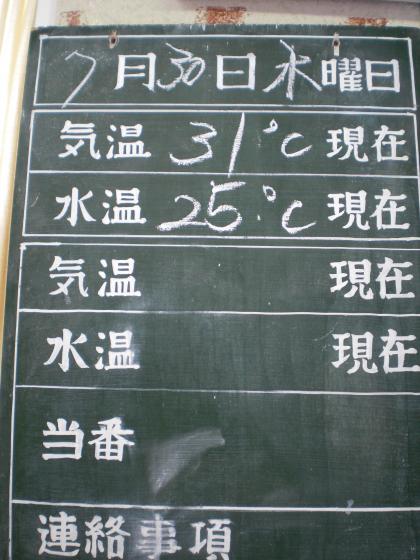 7月30日木曜日
気温 31℃ 現在
水温 25℃ 現在
気温 現在
水温 現在
当番
連絡事項